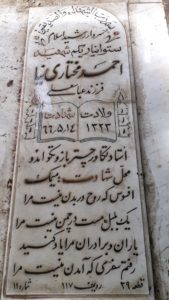 سردار رشید اسلام
ستوانیار یکم شهید
احمد مختاری نیا
فرزند عباسعلی
ولادت شهادت
۱۳۲۳ ۶۶.۵.۱۴
چترباز و تکاور
محل شهادت: میمک
افسوس که روح در بدن نیست مرا
یک بلبل مست در چمن نیست مرا
یاران و برادران مرا یاد کنید
رفتم سفری که آمدن نیست مرا
قطعه ۲۹ ردیف ۱۱۷ شماره ۱۱